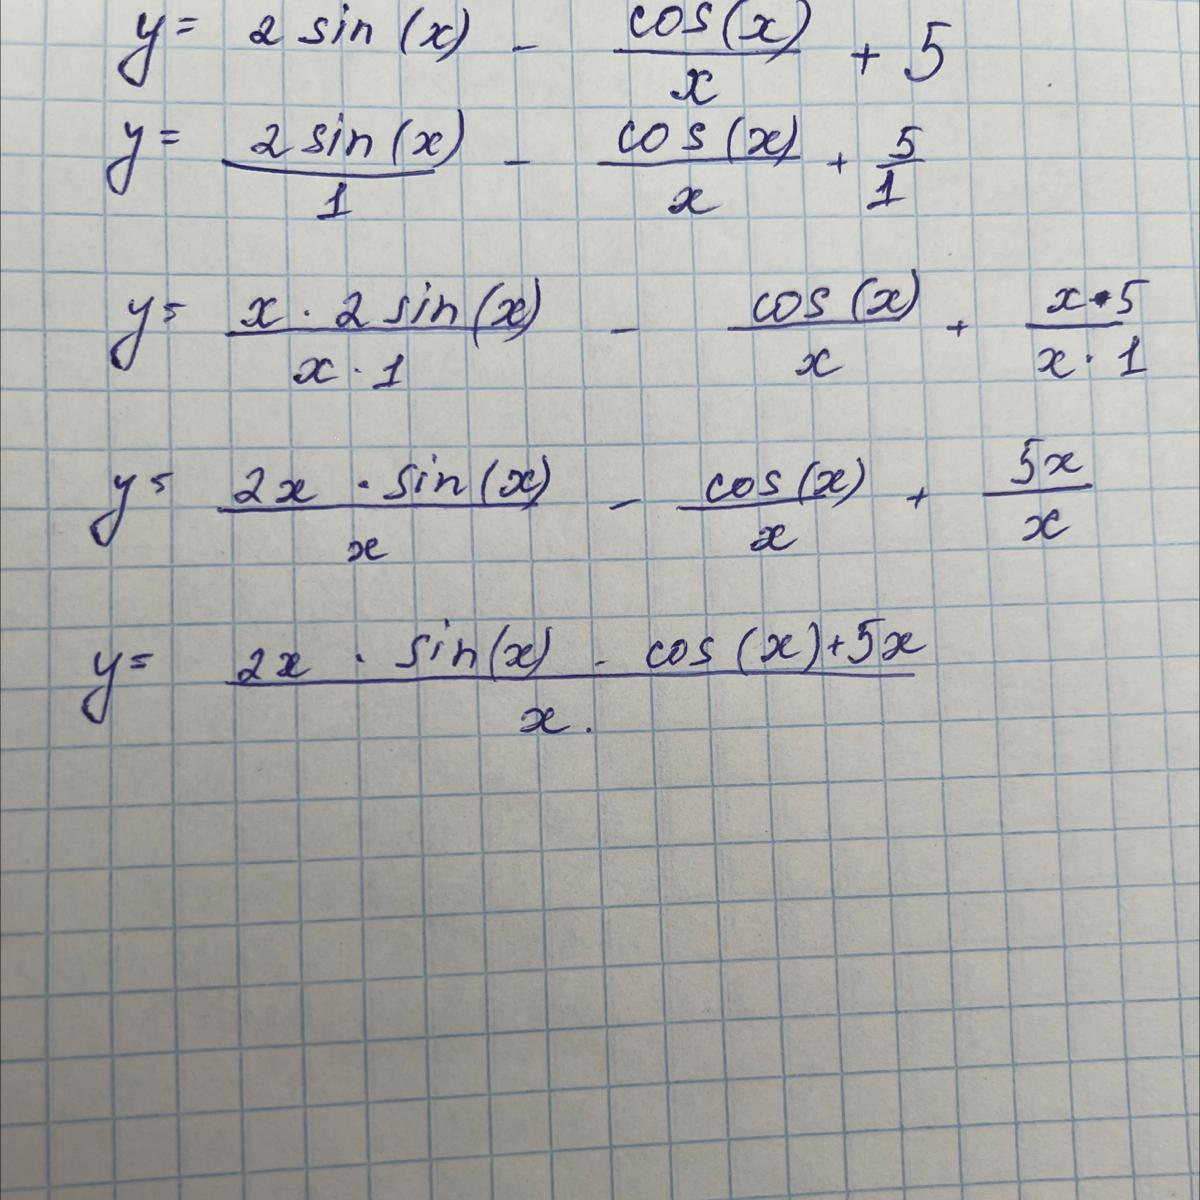 y = 2 sin (x) - cos(x)/x + 5
y = 2 sin (x)/1 - cos (x)/x + 5/1
y = x · 2 sin (x)/x · 1 - cos (x)/x + x · 5/x · 1
y = 2x · sin (x)/x - cos (x)/x + 5x/x
y = 2x · sin(x) - cos (x) + 5x/x.